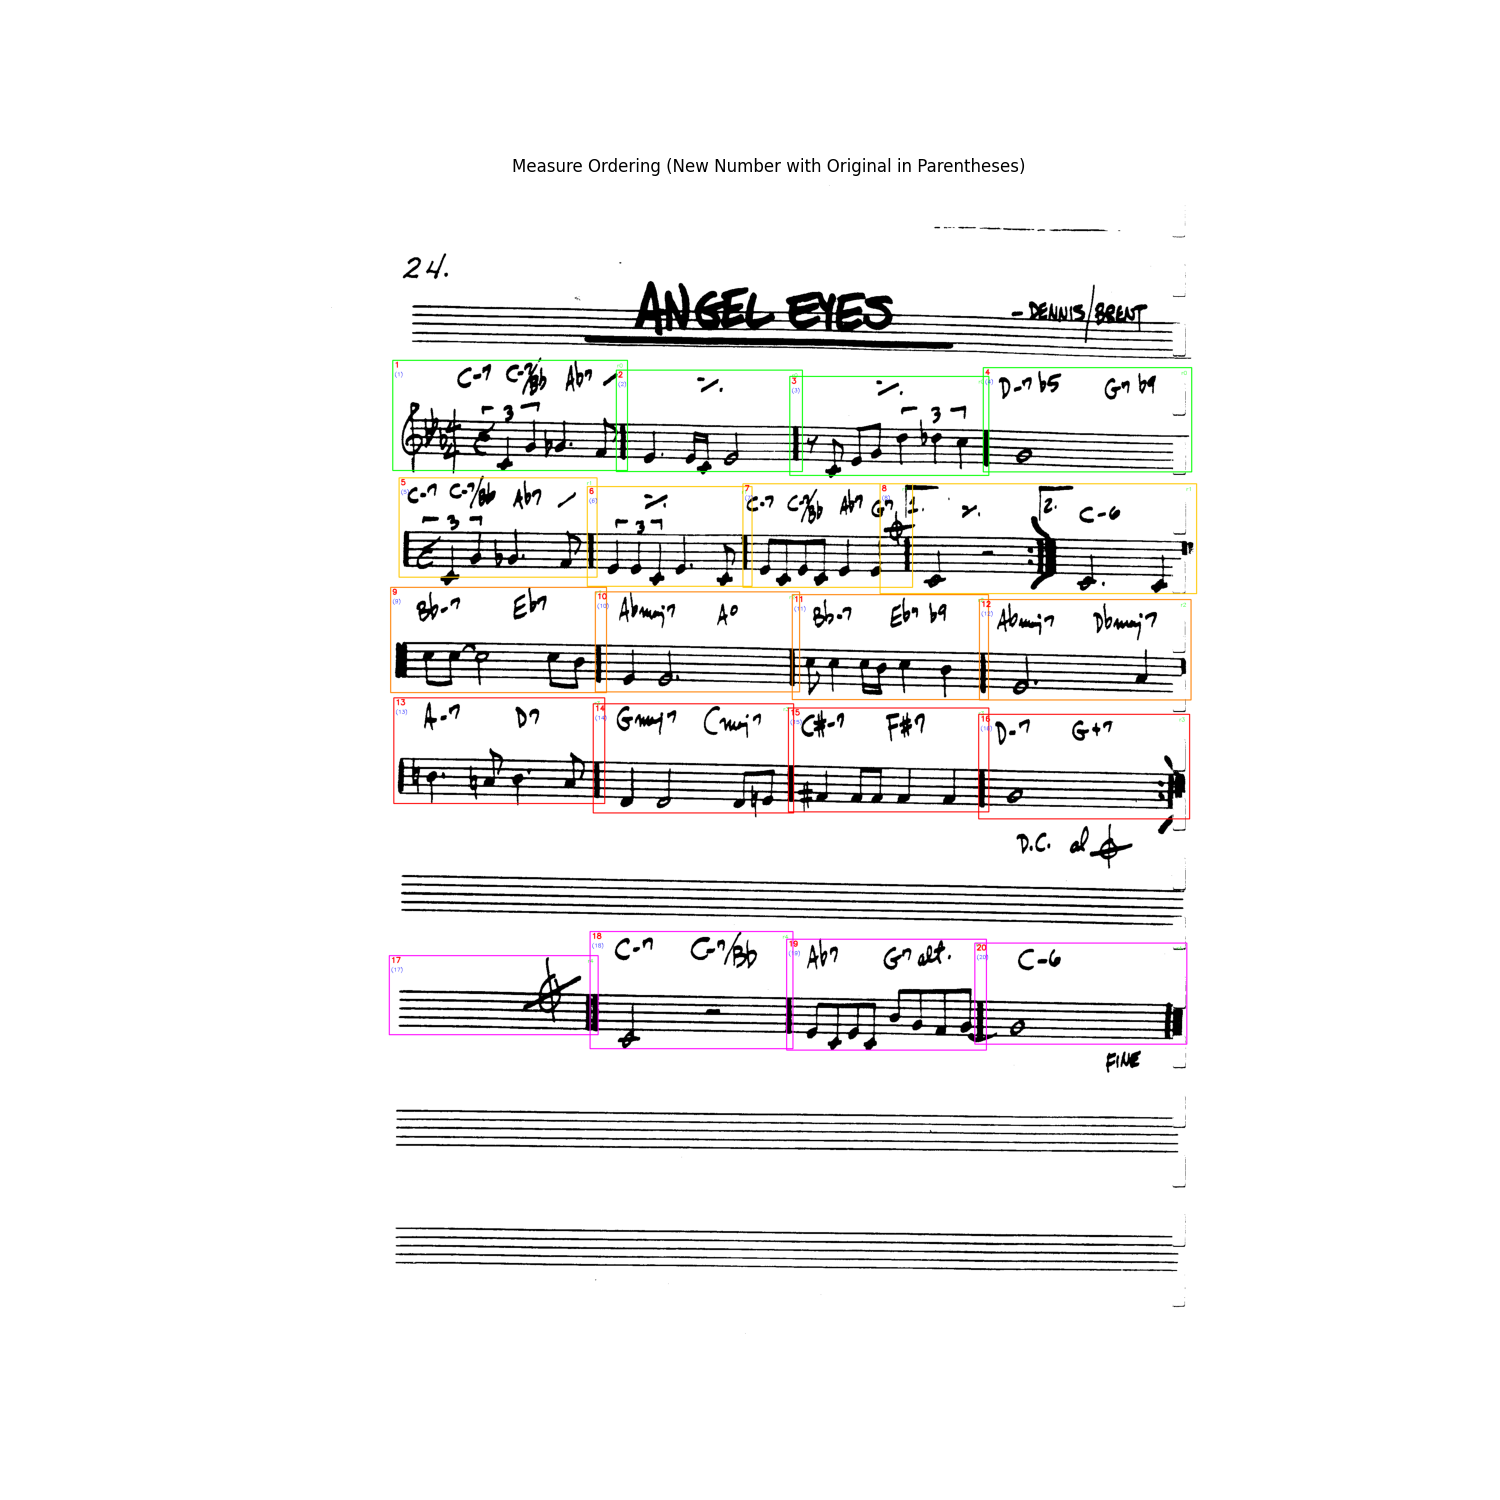 Measure Ordering (New Number with Original in Parentheses)
24.
ANGEL EYES
- DENNIS/BRENT
1 (1) C-7 C-7/Bb Ab7 2 (2) 3 (3) 4 (4) D-7b5 G7b9
3 3
5 (5) C-7 C-7/Bb Ab7 6 (6) 7 (7) C-7 C-7/Bb Ab7 G7 8 (8) 1. 2. C-6
3 3
9 (9) Bb-7 Eb7 10 (10) Abmaj7 A° 11 (11) Bb-7 Eb7b9 12 (12) Abmaj7 Dbmaj7
13 (13) A-7 D7 14 (14) Gmaj7 Cmaj7 15 (15) C#-7 F#7 16 (16) D-7 G+7
D.C. al
17 (17) 18 (18) C-7 C-7/Bb 19 (19) Ab7 G7alt. 20 (20) C-6
FINE